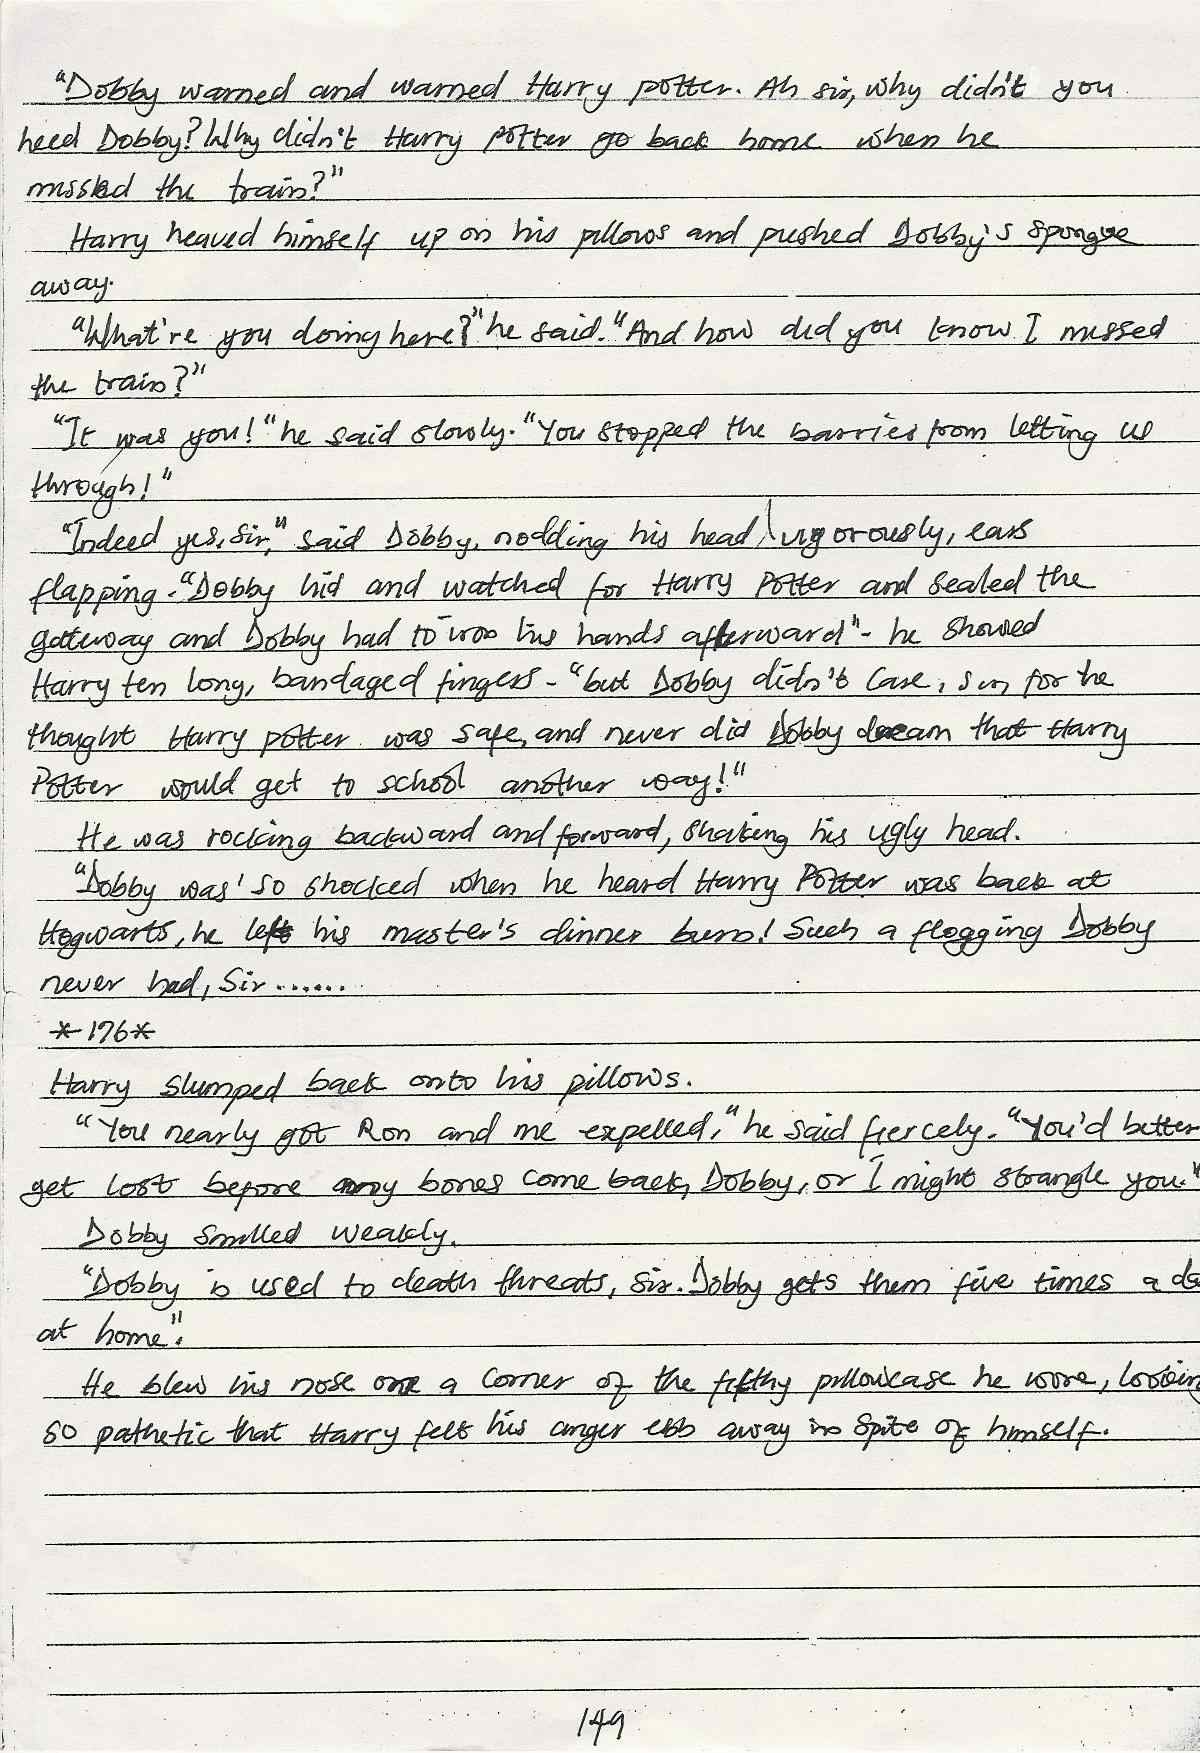 "Dobby warned and warned Harry potter. Ah sir, why didn't you
heed Dobby? Why didn't Harry Potter go back home when he
missed the train?"
Harry heaved himself up on his pillows and pushed Dobby's sponge
away.
"What're you doing here?" he said. "And how did you know I missed
the train?"
"It was you!" he said slowly. "You stopped the barrier from letting us
through!"
"Indeed yes, sir," said Dobby, nodding his head vigorously, ears
flapping. "Dobby hid and watched for Harry Potter and sealed the
gateway and Dobby had to iron his hands afterward" - he showed
Harry ten long, bandaged fingers - "but Dobby didn't care, sir, for he
thought Harry potter was safe, and never did Dobby dream that Harry
Potter would get to school another way!"
He was rocking backward and forward, shaking his ugly head.
"Dobby was so shocked when he heard Harry Potter was back at
Hogwarts, he left his master's dinner burn! Such a flogging Dobby
never had, Sir......
*176*
Harry slumped back onto his pillows.
"You nearly got Ron and me expelled," he said fiercely. "You'd better
get lost before my bones come back, Dobby, or I might strangle you."
Dobby smiled weakly.
"Dobby is used to death threats, sir. Dobby gets them five times a da
at home".
He blew his nose one a corner of the filthy pillowcase he wore, looking
so pathetic that Harry felt his anger ebb away in spite of himself.
149